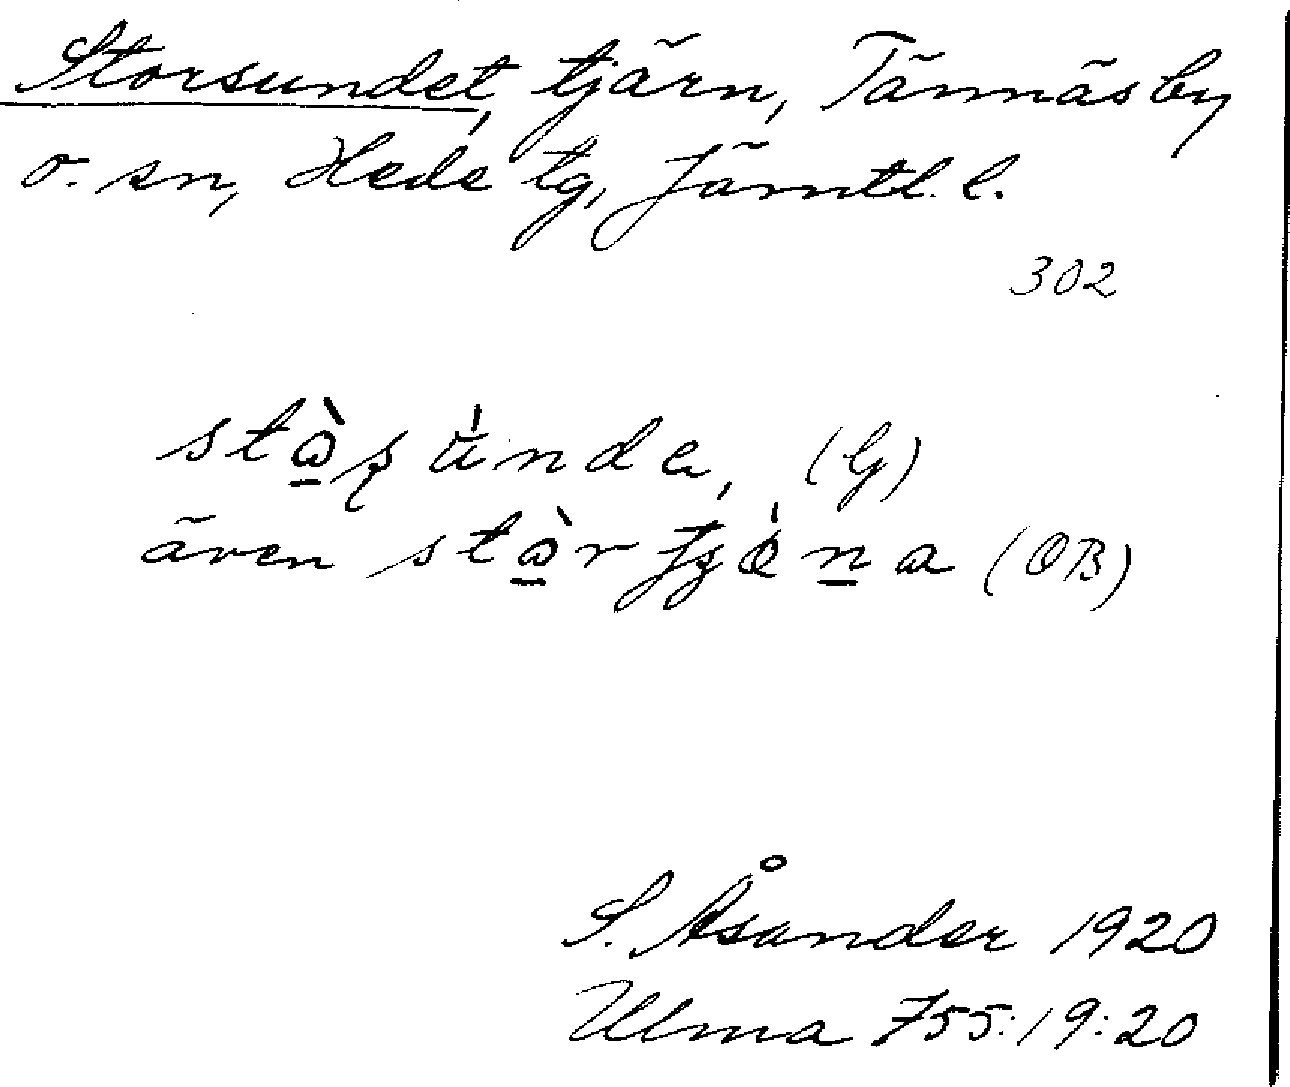 Storsundet, tjärn, Tännäs by
o. sn, Hede tg, Jämtl. l.
302
(G)
även (OB)
S. Åsander 1920
Ulma 755:19:20